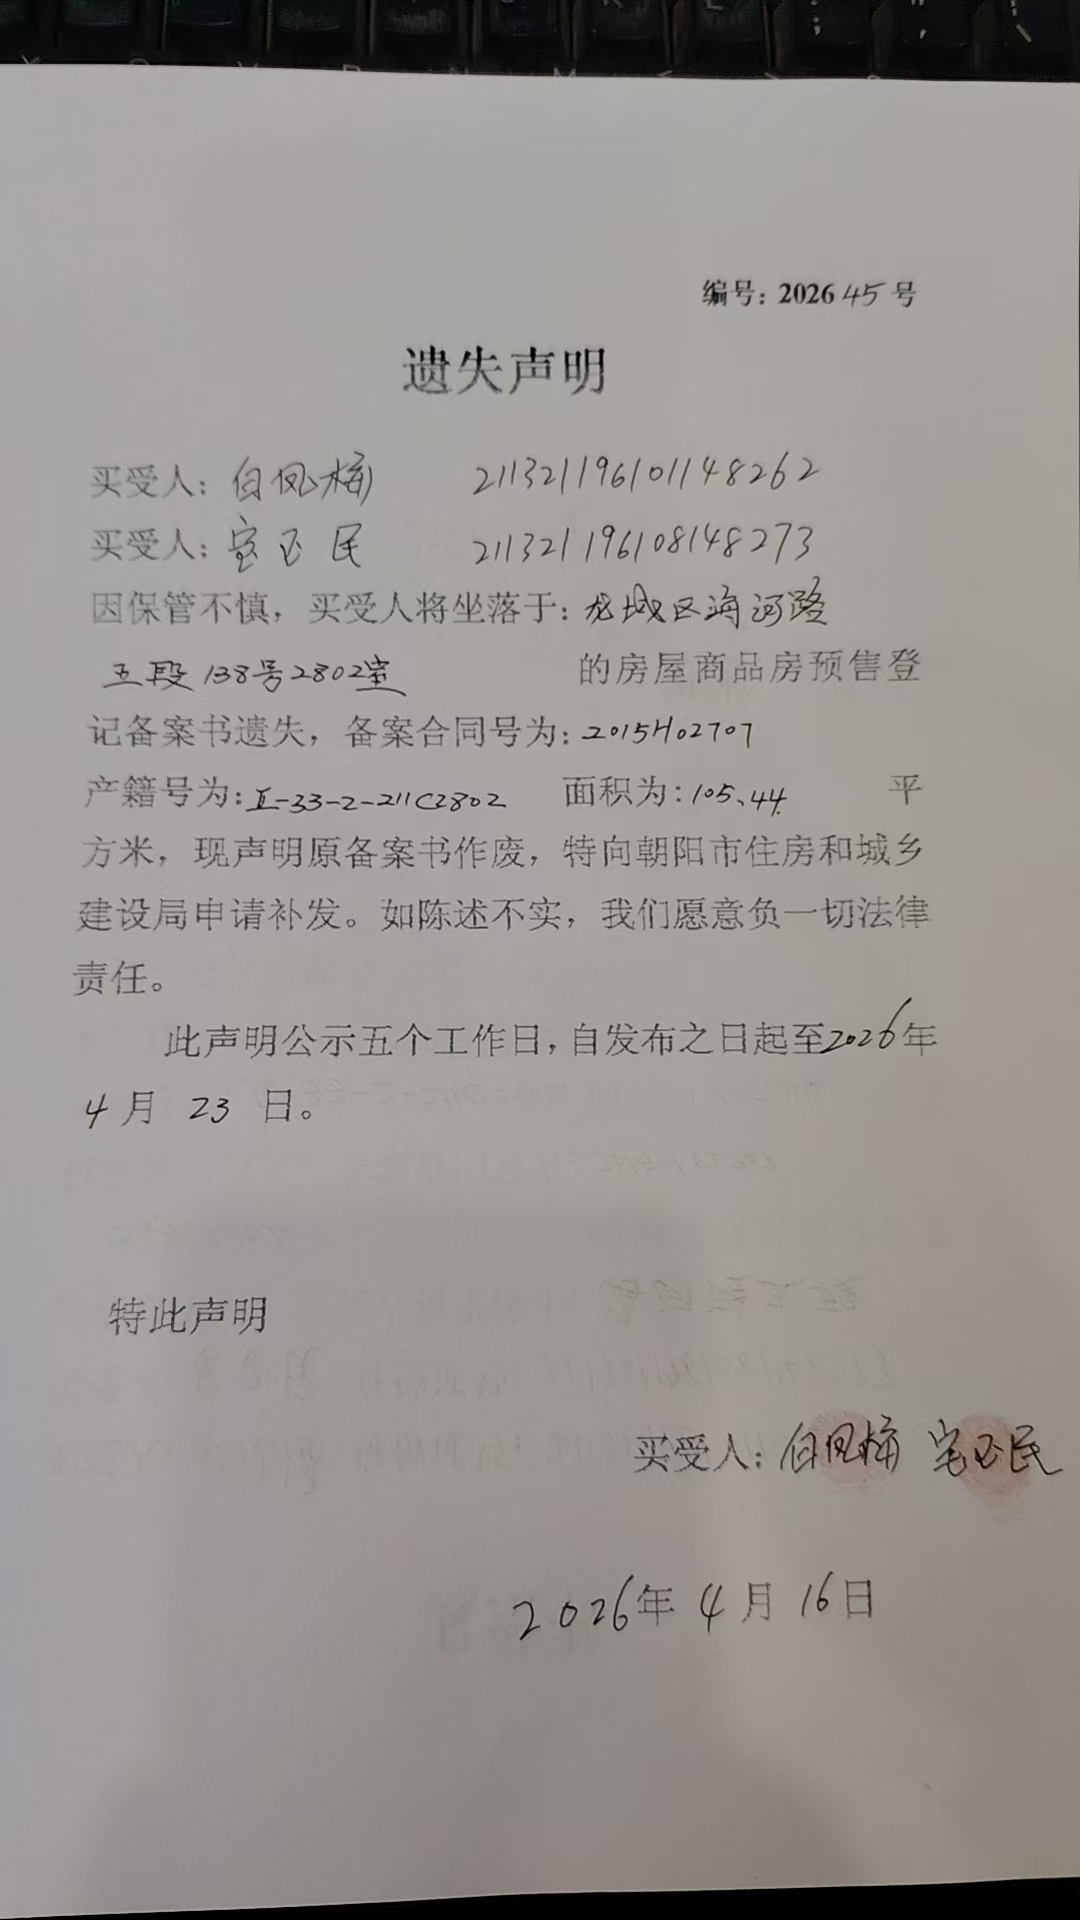 编号：2026 45 号
遗失声明
买受人：白凤梅 211321196101148262
买受人：宝玉民 211321196108148273
因保管不慎，买受人将坐落于：龙城区海河路
五段138号2802室 的房屋商品房预售登
记备案书遗失，备案合同号为：2015H02707
产籍号为：I-33-2-211C2802 面积为：105.44 平
方米，现声明原备案书作废，特向朝阳市住房和城乡
建设局申请补发。如陈述不实，我们愿意负一切法律
责任。
此声明公示五个工作日，自发布之日起至2026年
4 月 23 日。
特此声明
买受人：白凤梅 宝玉民
2026年 4 月 16日